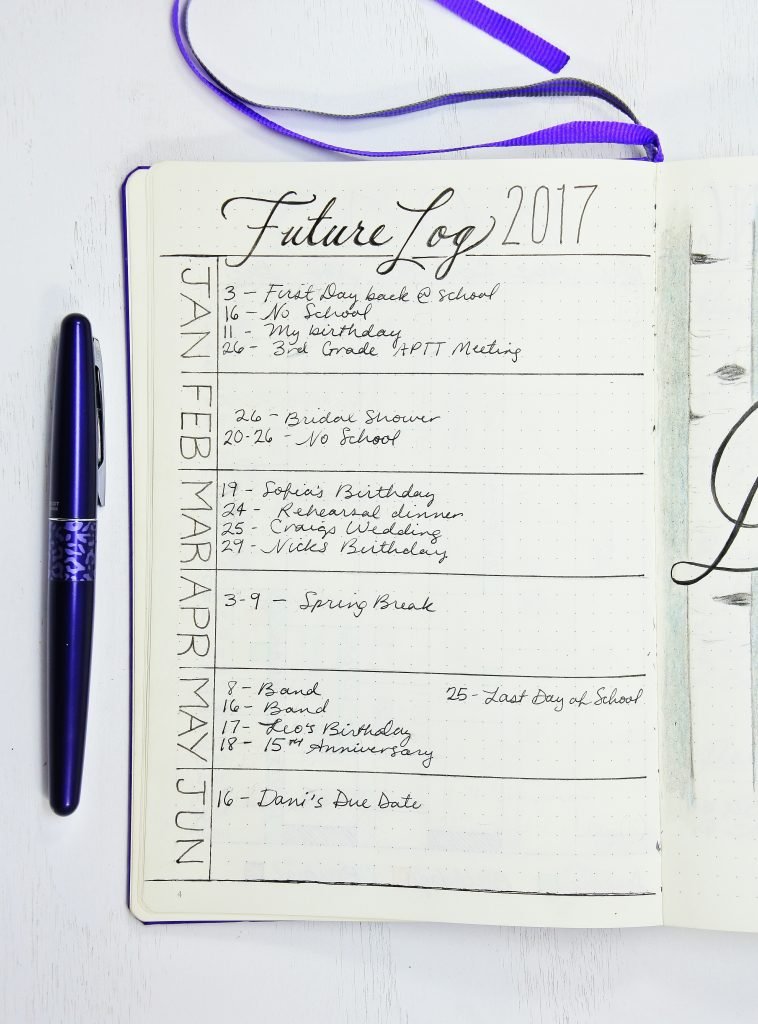 Future Log 2017
JAN
3 - First Day back @ school
16 - No School
11 - My birthday
26 - 3rd Grade APTT Meeting
FEB
26 - Bridal Shower
20-26 - No School
MAR
19 - Sofia's Birthday
24 - Rehearsal dinner
25 - Craigs Wedding
29 - Nicks Birthday
APR
3-9 - Spring Break
MAY
8 - Band
16 - Band
17 - Leo's Birthday
18 - 15TH Anniversary
25 - Last Day of School
JUN
16 - Dani's Due Date
4